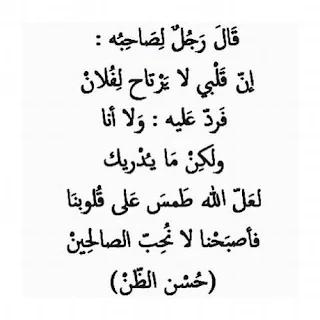 قَالَ رَجُلٌ لِصَاحِبُه :
إنّ قَلْبي لا يَرْتاح لِفُلانْ
فَردّ عَليه : وَلا أنا
ولكِنْ مَا يُدْريك
لعَلّ الله طَمسَ عَلى قُلوبنَا
فأصبَحْنا لا نُحِبّ الصالحِينْ
(حُسْن الظّنْ)